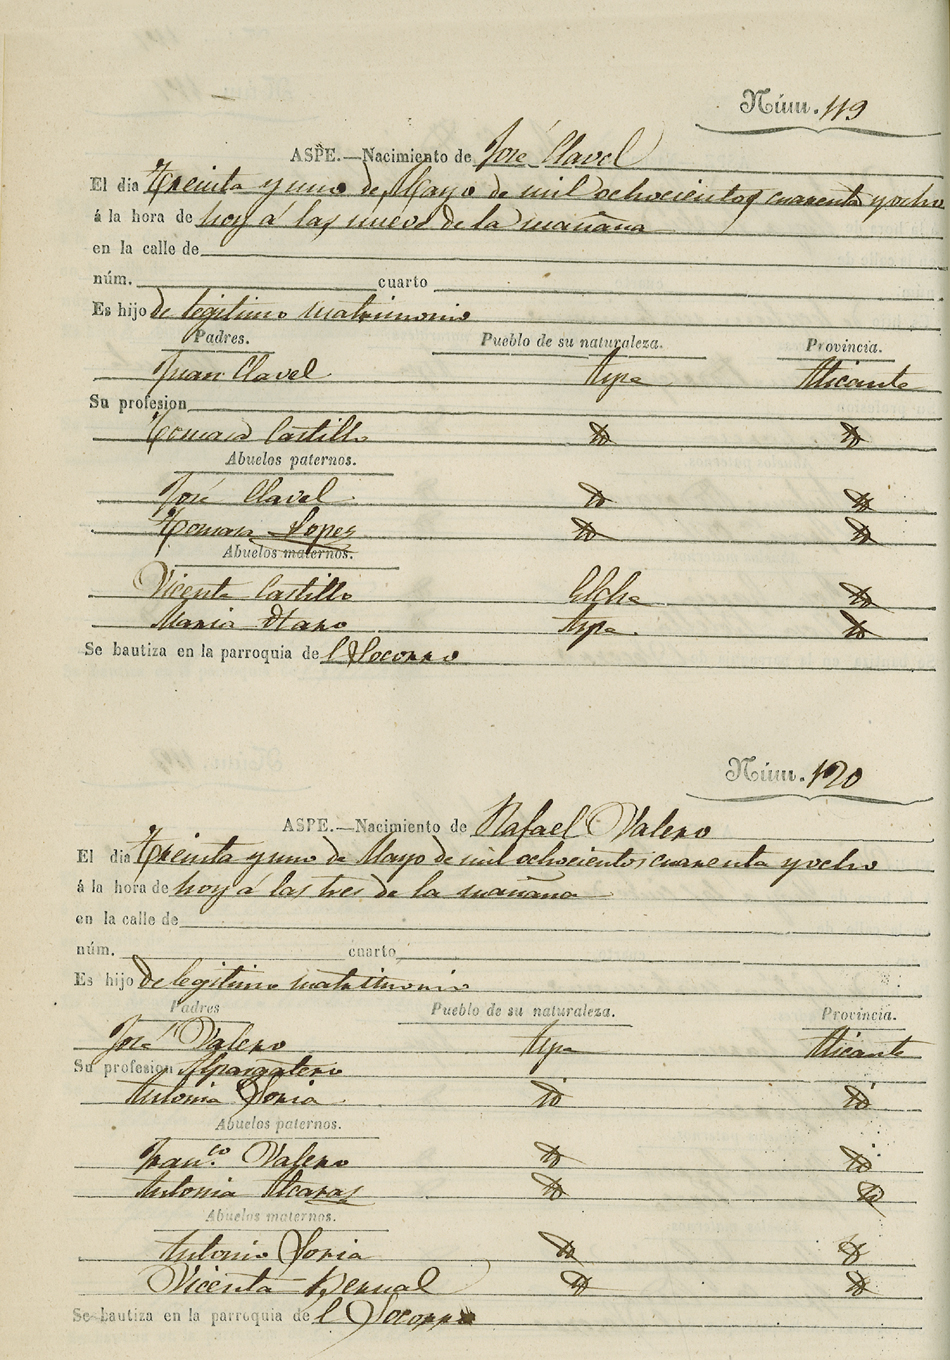 Núm. 119
ASPE.—Nacimiento de José Clavel
El dia Treinta y uno de Mayo de mil ochocientos cuarenta y ocho
á la hora de hoy á las nueve de la mañana
en la calle de
núm. cuarto
Es hijo de legitimo matrimonio
Padres. Pueblo de su naturaleza. Provincia.
Juan Clavel Aspe Alicante
Su profesion
Tomasa Castillo id id
Abuelos paternos.
José Clavel id id
Tomasa Lopez id id
Abuelos maternos.
Vicente Castillo Elche id
Maria Aspe id
Se bautiza en la parroquia del Socorro
Núm. 120
ASPE.—Nacimiento de Rafael Valero
El dia Treinta y uno de Mayo de mil ochocientos cuarenta y ocho
á la hora de hoy á las tres de la mañana
en la calle de
núm. cuarto
Es hijo de legitimo matrimonio
Padres Pueblo de su naturaleza. Provincia.
José Valero Aspe Alicante
Su profesion Alpargatero
Antonia Soria id id
Abuelos paternos.
Fran.co Valero id id
Antonia Alcaras id id
Abuelos maternos.
Antonio Soria id id
Vicenta Bernal id id
Se bautiza en la parroquia del Socorro